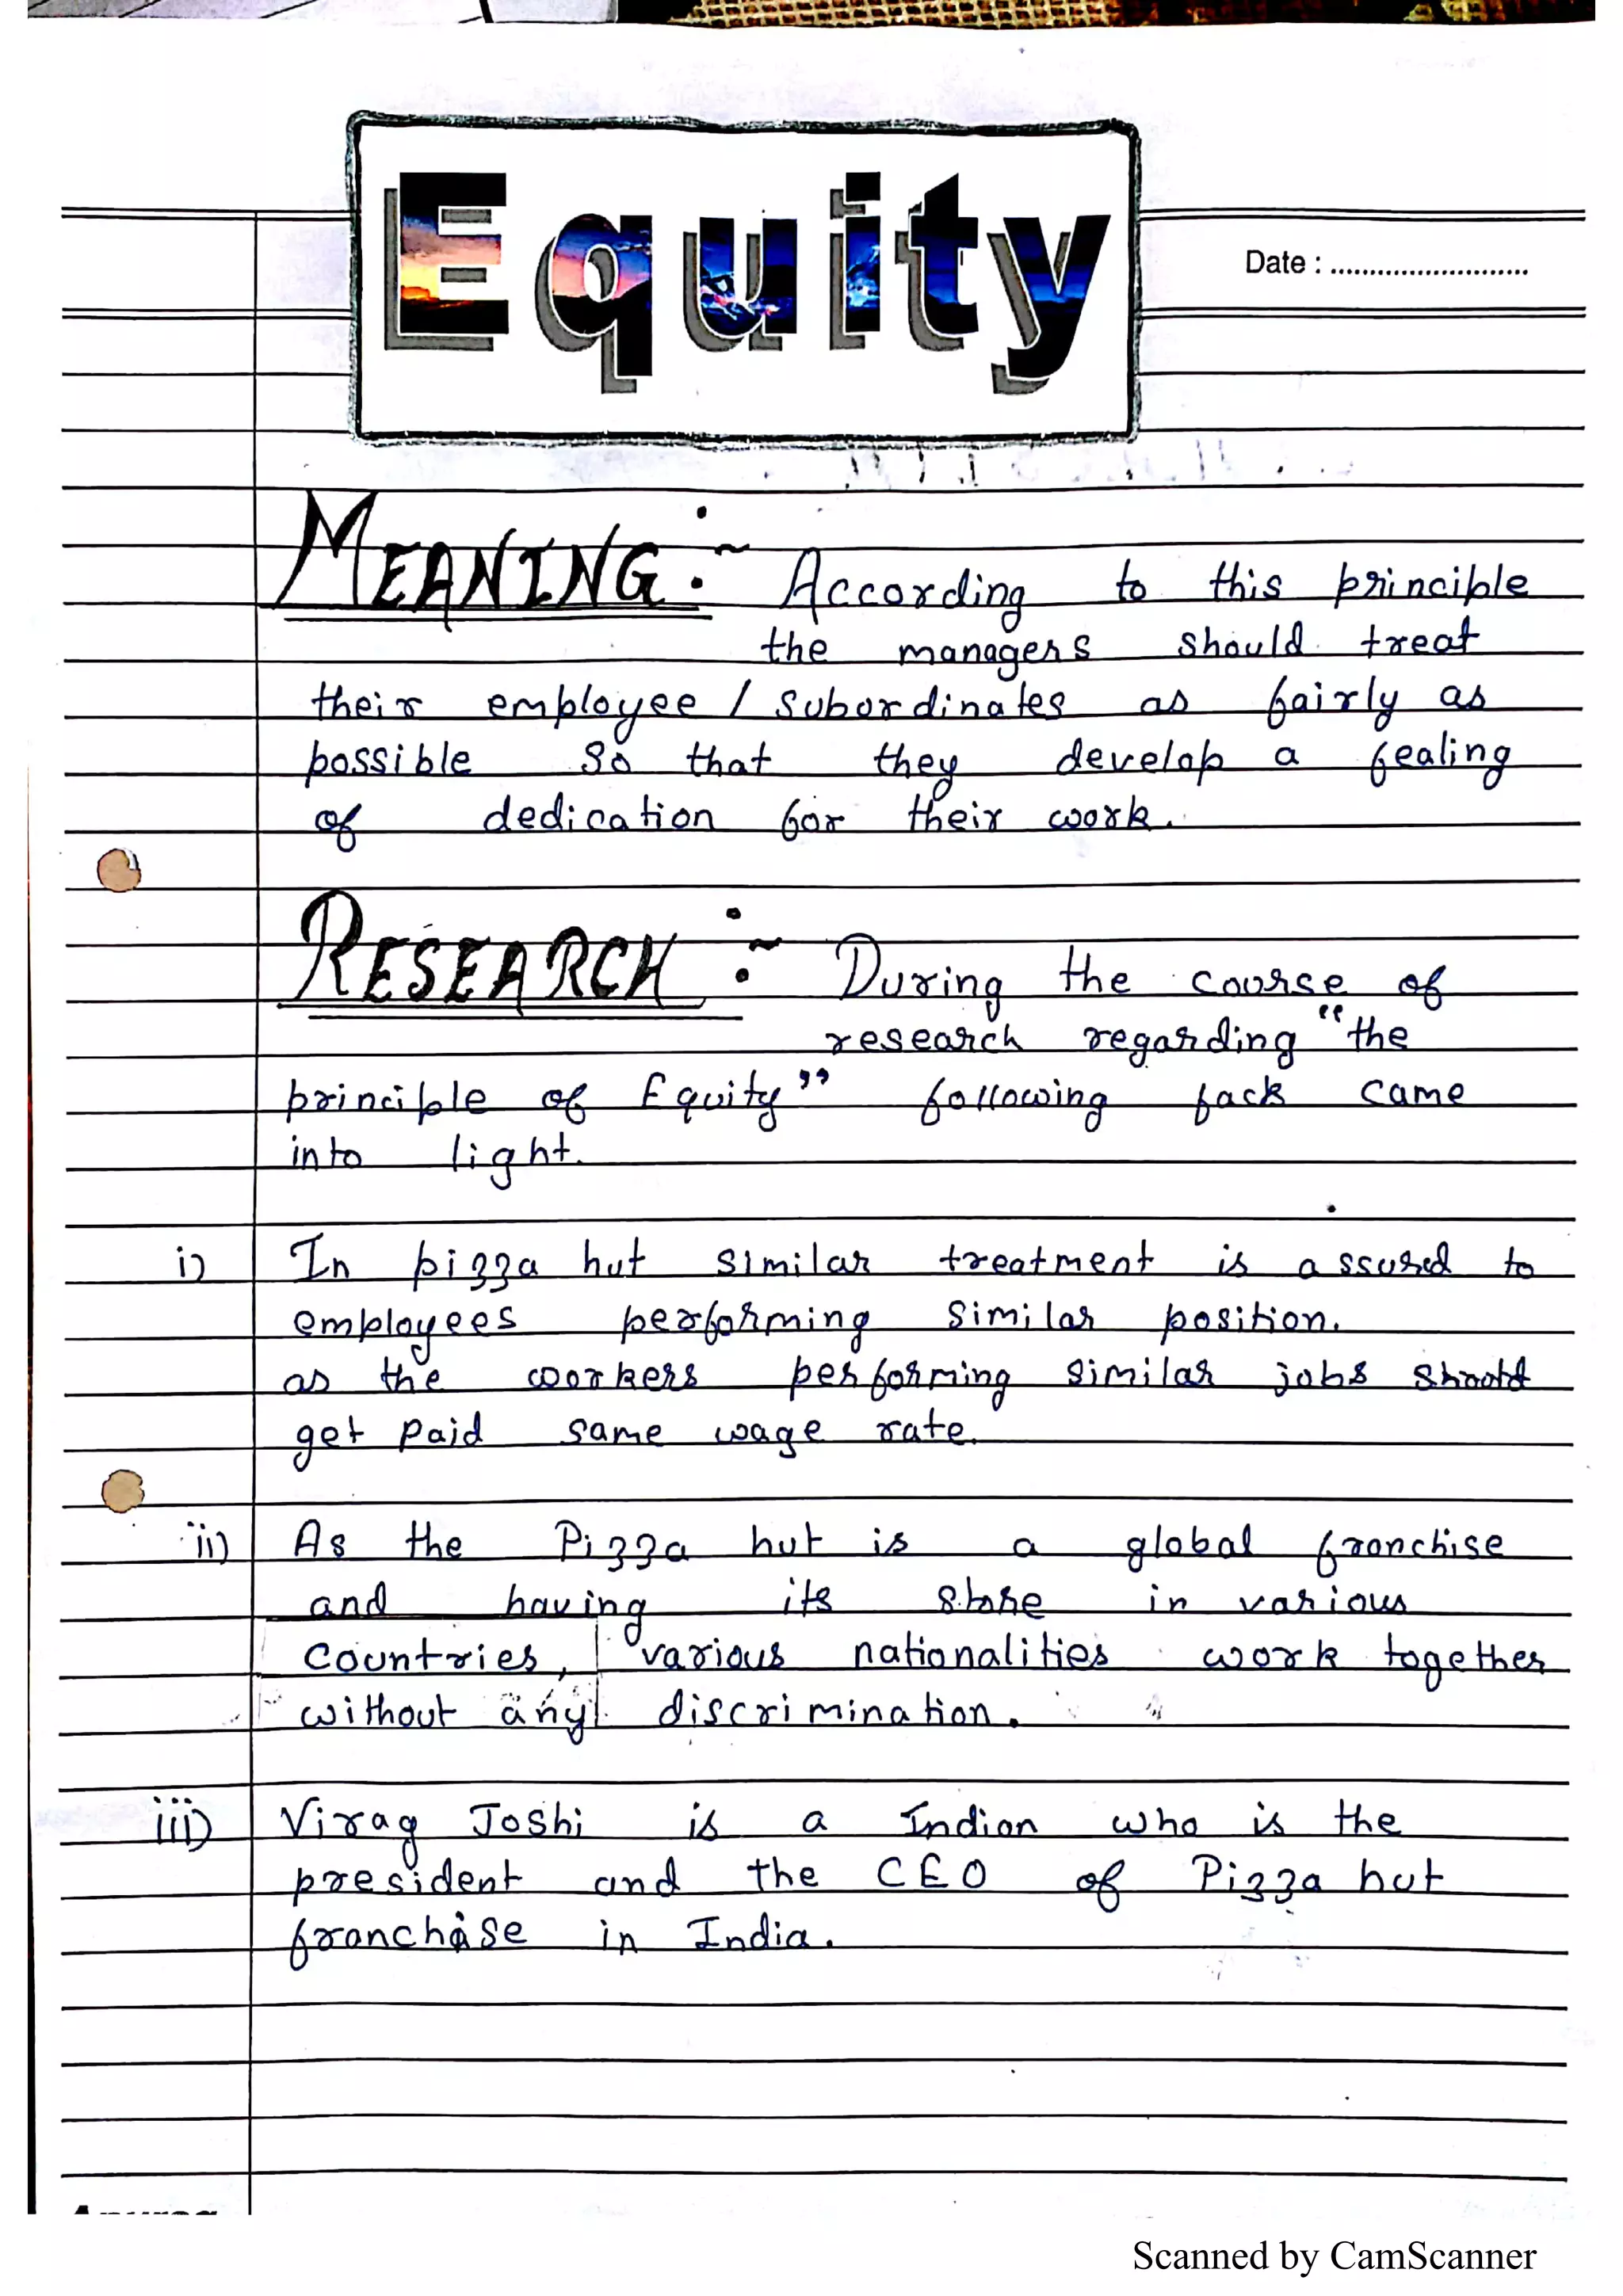 Equity
Date : ..........................
MEANING:- According to this principle
the managers should treat
their employee / subordinates as fairly as
possible so that they develop a fealing
of dedication for their work.
RESEARCH :- During the course of
research regarding "the
principle of Equity" following fack came
into light.
i) In pizza hut similar treatment is assured to
employees performing similar position.
as the workers performing similar jobs should
get paid same wage rate.
ii) As the Pizza hut is a global franchise
and having its store in various
countries, various nationalities work together
without any discrimination.
iii) Virag Joshi is a Indian who is the
president and the CEO of Pizza hut
franchise in India.
Scanned by CamScanner